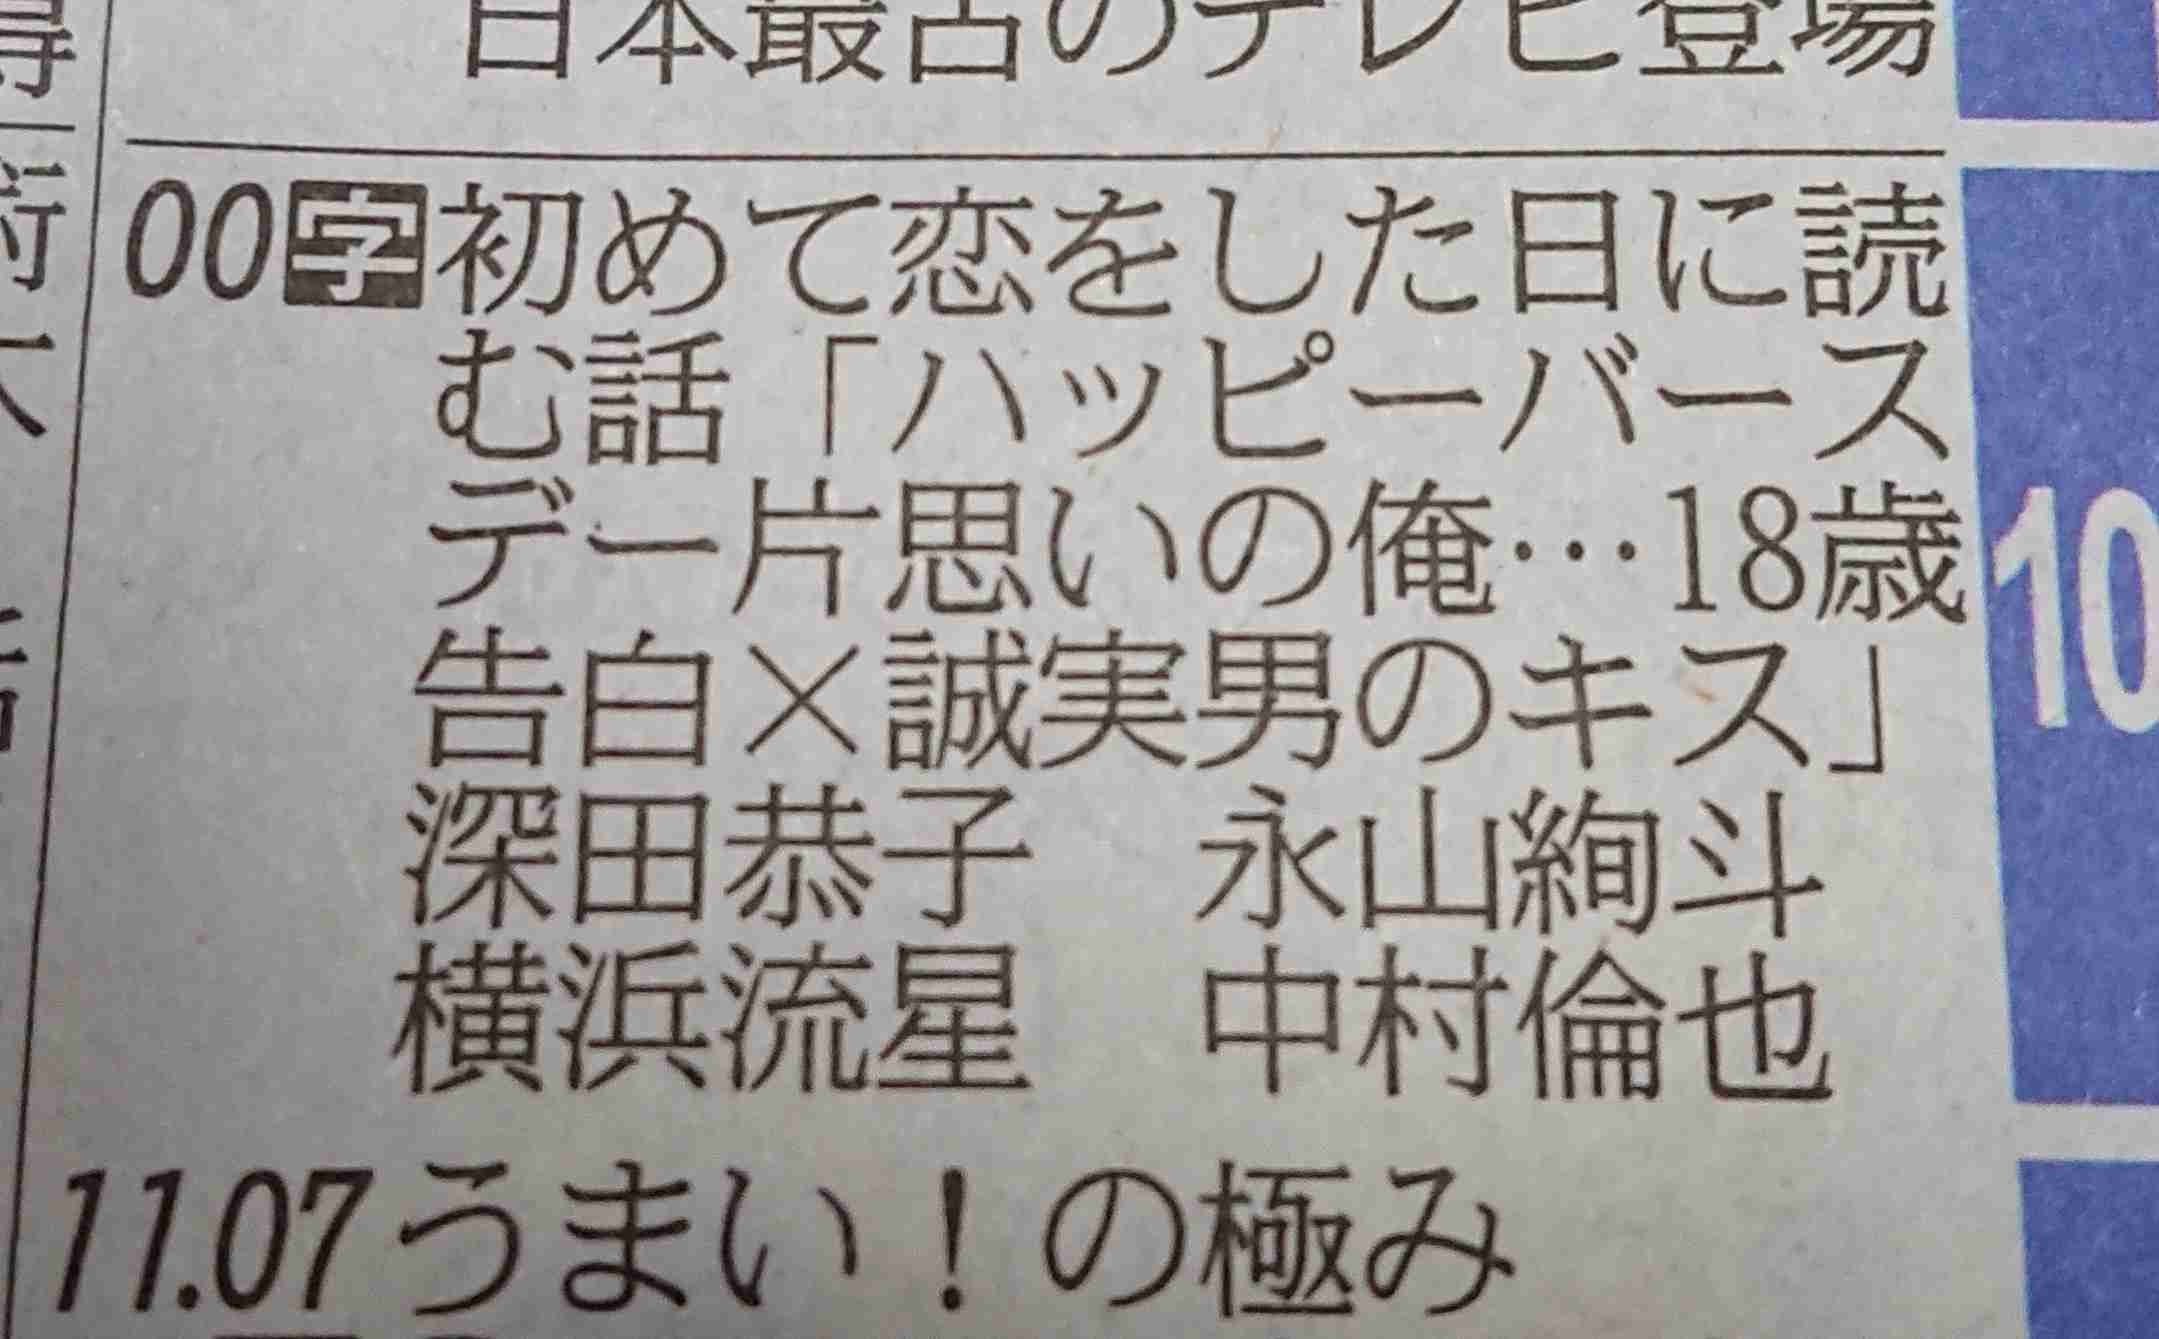 日本最古のテレビ登場
00字初めて恋をした日に読
む話「ハッピーバース
デー片思いの俺…18歳
告白×誠実男のキス」
深田恭子　永山絢斗
横浜流星　中村倫也
11.07うまい！の極み
10